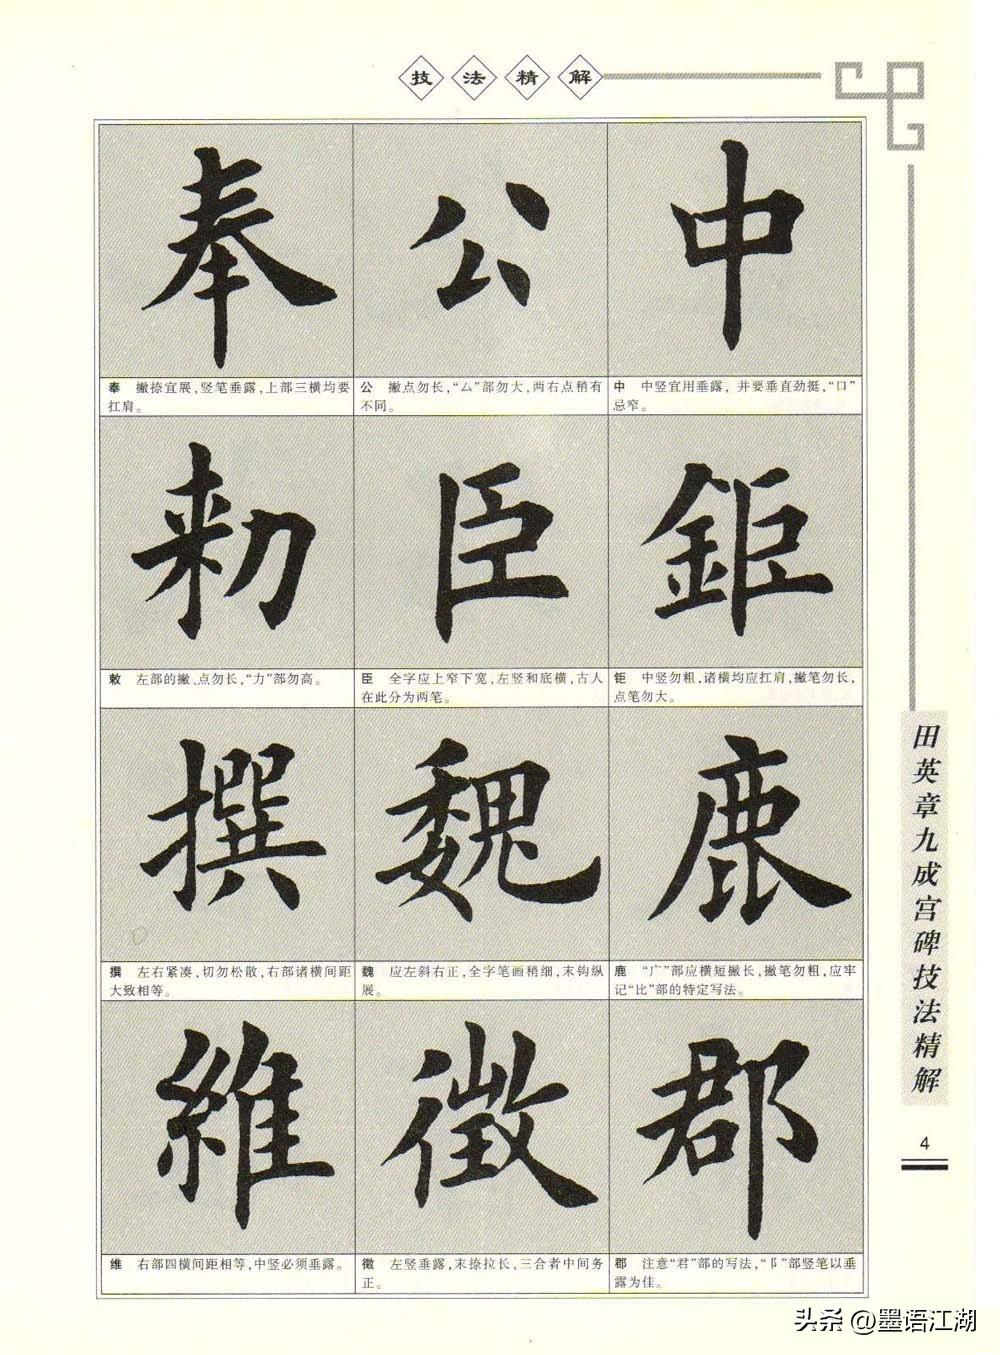 技法精解
奉
公
中
奉 撇捺宜展，竖笔垂露，上部三横均要
扛肩。
公 撇点勿长，“厶”部勿大，两右点稍有
不同。
中 中竖宜用垂露，并要垂直劲挺，“口”
忌窄。
勑
臣
鉅
敕 左部的撇、点勿长，“力”部勿高。
臣 全字应上窄下宽，左竖和底横，古人
在此分为两笔。
钜 中竖勿粗，诸横均应扛肩，撇笔勿长，
点笔勿大。
撰
魏
鹿
撰 左右紧凑，切勿松散，右部诸横间距
大致相等。
魏 应左斜右正，全字笔画稍细，末钩纵
展。
鹿 “广”部应横短撇长，撇笔勿粗，应牢
记“比”部的特定写法。
維
徵
郡
维 右部四横间距相等，中竖必须垂露。
徵 左竖垂露，末捺拉长，三合者中间务
正。
郡 注意“君”部的写法，“阝”部竖笔以垂
露为佳。
田英章九成宫碑技法精解
4
头条 @墨语江湖